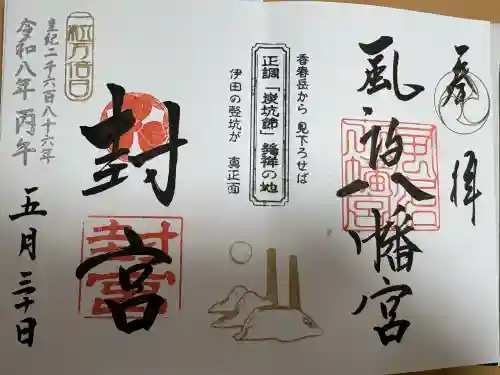 奉拝
風治八幡宮
香春岳から 見下ろせば
正調「炭坑節」発祥の地
伊田の竪坑が 真正面
封宮
封宮
一粒万倍日
皇紀二千六百八十六年
令和八年 丙午
五月三十日